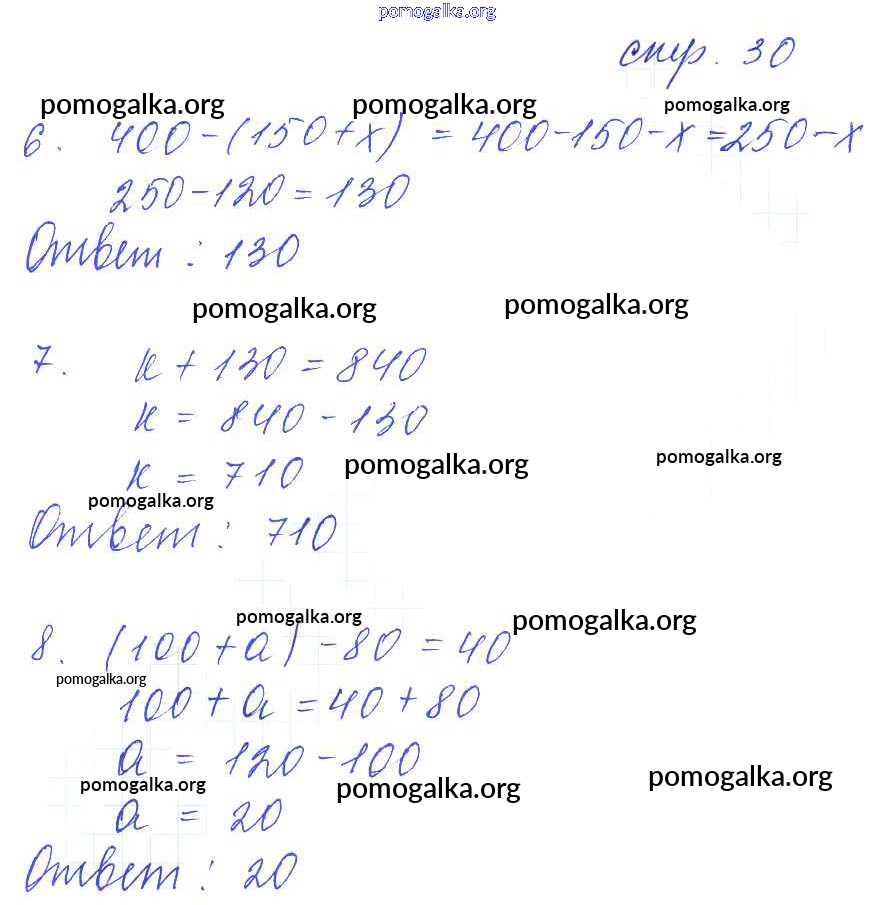 pomogalka.org
стр. 30
pomogalka.org pomogalka.org pomogalka.org
6. 400-(150+x) = 400-150-x=250-x
250-120=130
Ответ: 130
pomogalka.org pomogalka.org
7. к+130=840
к = 840-130
к = 710
pomogalka.org pomogalka.org
pomogalka.org
Ответ: 710
pomogalka.org pomogalka.org
8. (100+а)-80=40
pomogalka.org
100+а=40+80
а = 120-100
pomogalka.org pomogalka.org pomogalka.org
а = 20
Ответ: 20